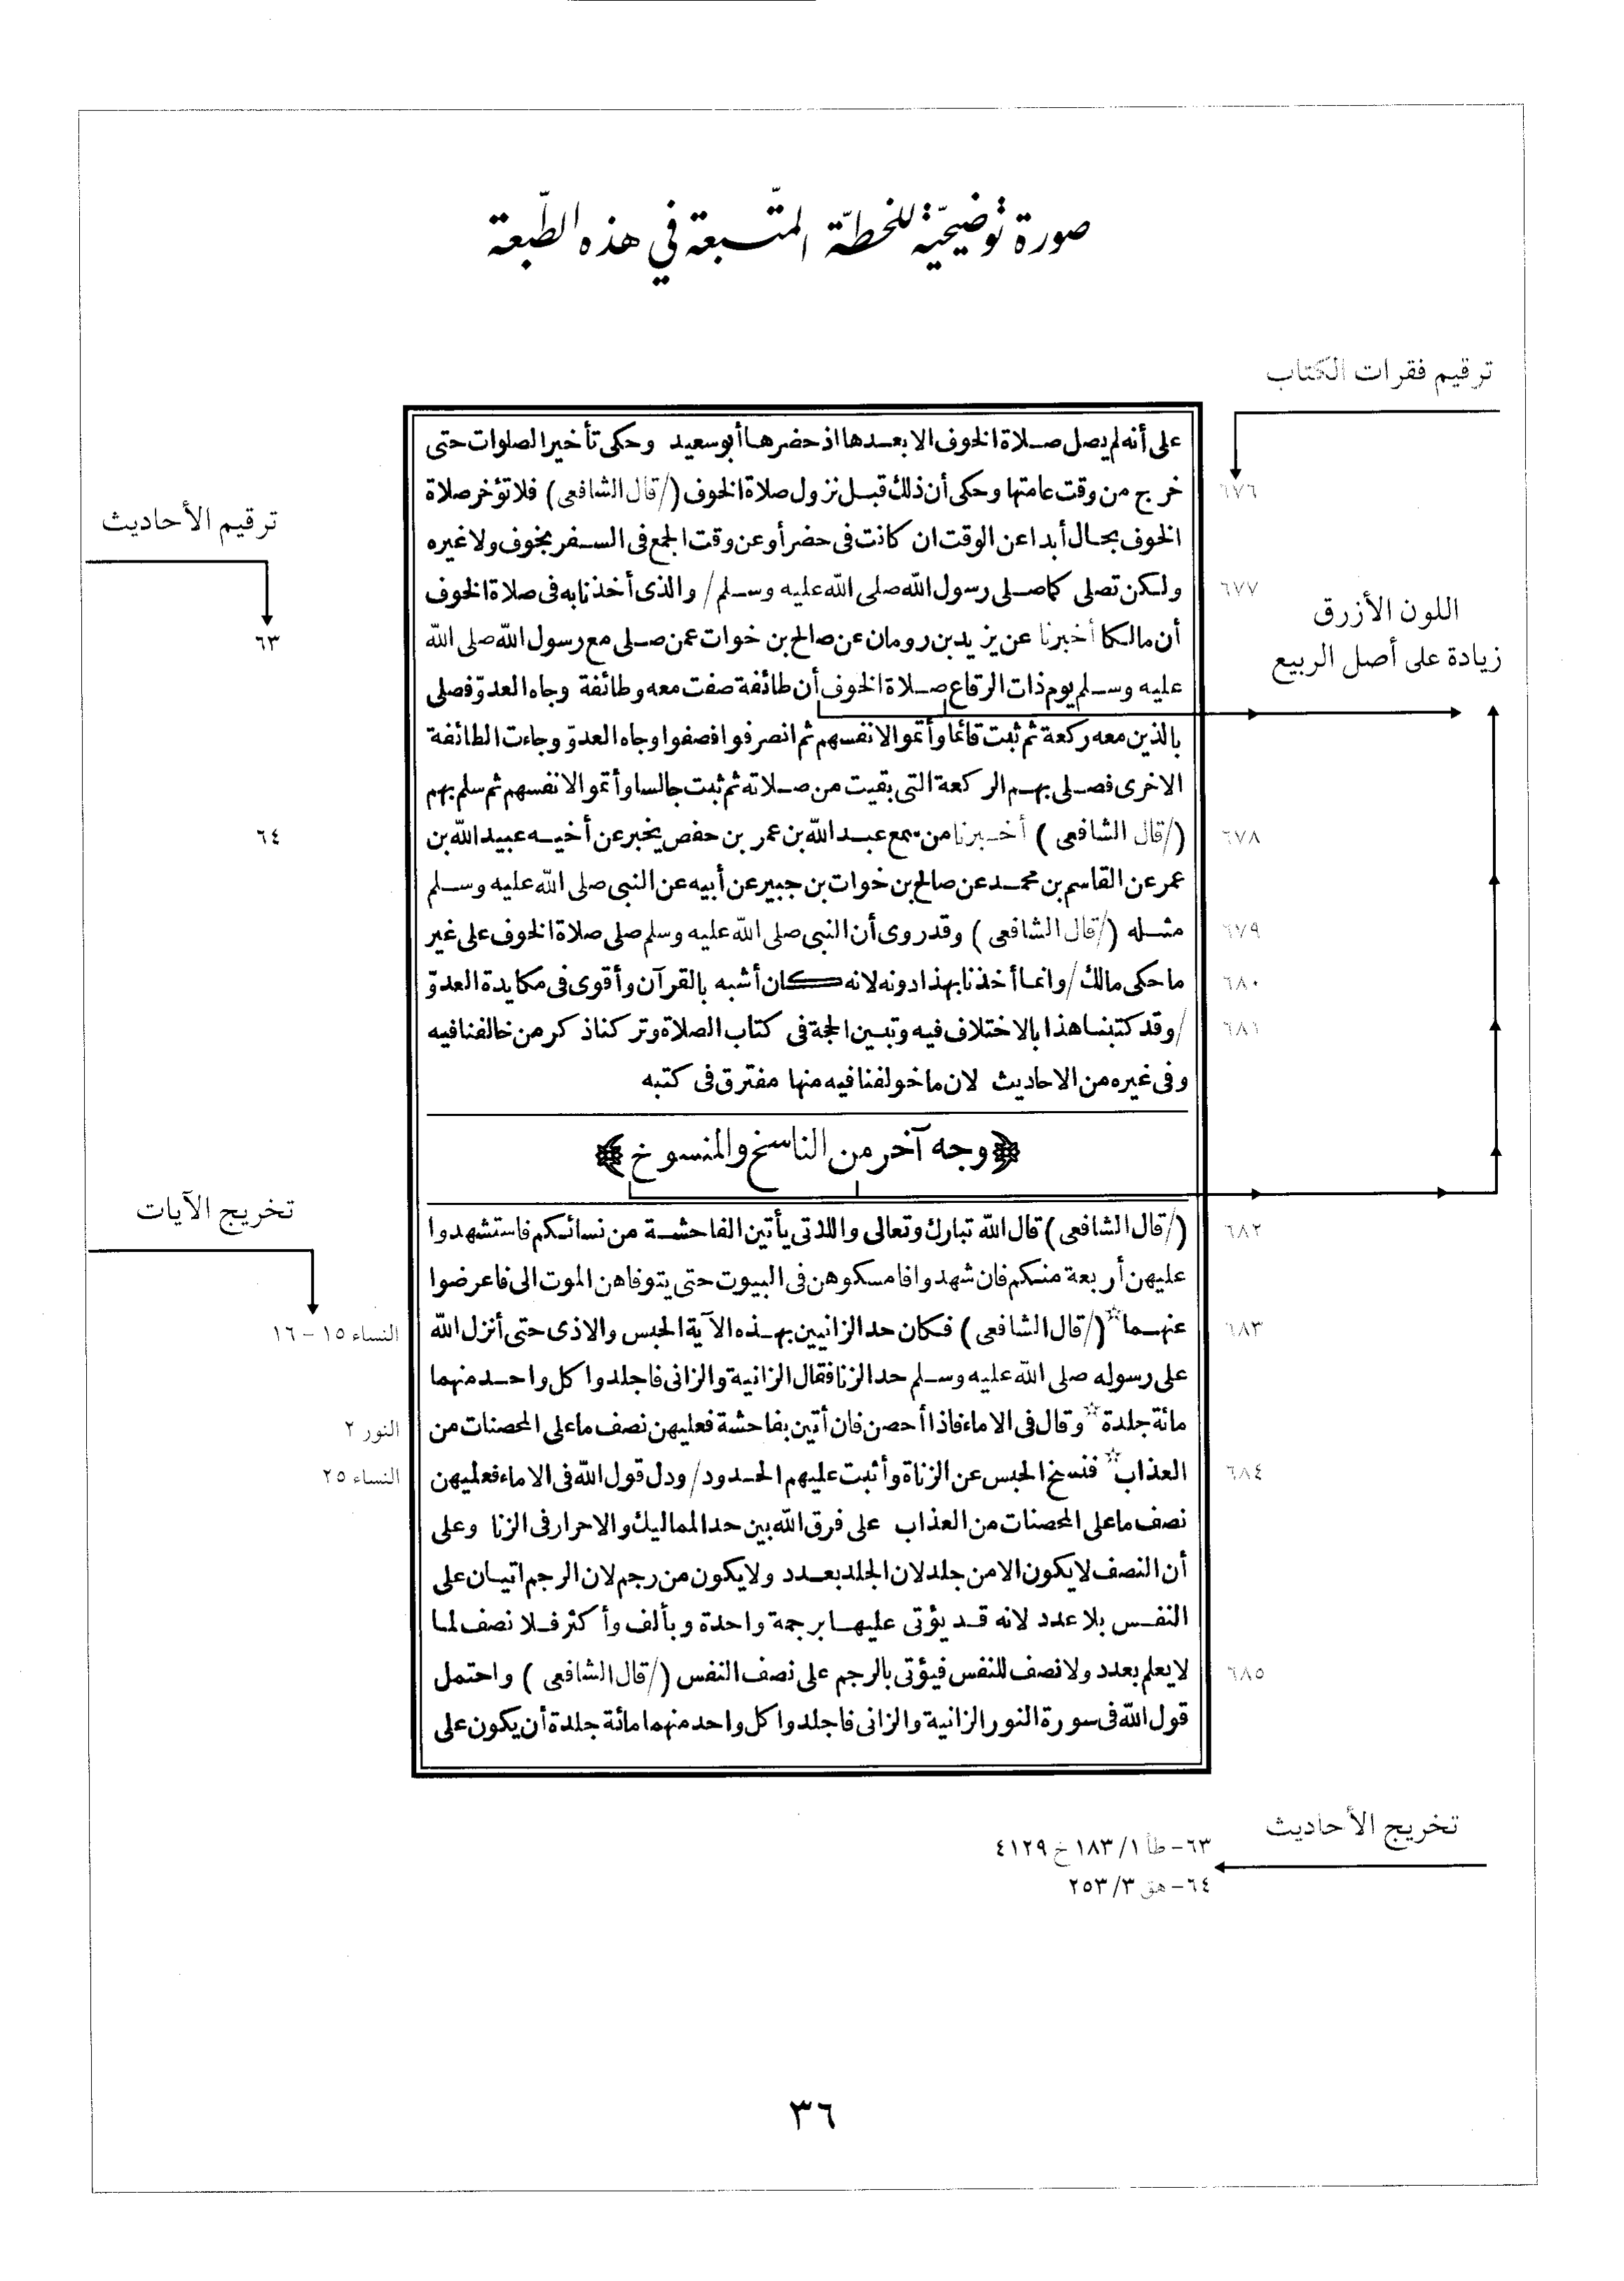 صورة توضيحيّة للخطّة المتّبعة في هذه الطّبعة
ترقيم فقرات الكتاب
على أنه لم يصل صلاة الخوف الا بعدها اذ حضرها أبو سعيد وحكى تأخير الصلوات حتى
٦٧٦
خرج من وقت عامتها وحكى أن ذلك قبل نزول صلاة الخوف (/ قال الشافعى) فلا تؤخر صلاة
ترقيم الأحاديث
الخوف بحال أبدا عن الوقت ان كانت فى حضر أو عن وقت الجمع فى السفر بخوف ولا غيره
٦٧٧
ولكن تصلى كما صلى رسول الله صلى الله عليه وسلم / والذى أخذنا به فى صلاة الخوف
اللون الأزرق
زيادة على أصل الربيع
أن مالكا أخبرنا عن يزيد بن رومان عن صالح بن خوات عمن صلى مع رسول الله صلى الله
٦٣
عليه وسلم يوم ذات الرقاع صلاة الخوف أن طائفة صفت معه وطائفة وجاه العدوّ فصلى
بالذين معه ركعة ثم ثبت قائما وأتموا لانفسهم ثم انصرفوا فصفوا وجاه العدوّ وجاءت الطائفة
الاخرى فصلى بهم الركعة التى بقيت من صلاته ثم ثبت جالسا وأتموا لانفسهم ثم سلم بهم
٦٧٨
(/ قال الشافعى) أخبرنا من سمع عبد الله بن عمر بن حفص يخبر عن أخيه عبيد الله بن
٦٤
عمر عن القاسم بن محمد عن صالح بن خوات بن جبير عن أبيه عن النبى صلى الله عليه وسلم
٦٧٩
مثله (/ قال الشافعى) وقد روى أن النبى صلى الله عليه وسلم صلى صلاة الخوف على غير
٦٨٠
ما حكى مالك / وانما أخذنا بهذا دونه لانه كان أشبه بالقرآن وأقوى فى مكايدة العدوّ
٦٨١
/ وقد كتبنا هذا بالاختلاف فيه وتبين الحجة فى كتاب الصلاة وتركنا ذكر من خالفنا فيه
وفى غيره من الاحاديث لان ما خولفنا فيه منها مفترق فى كتبه
﴿وجه آخر من الناسخ والمنسوخ﴾
تخريج الآيات
٦٨٢
(/ قال الشافعى) قال الله تبارك وتعالى واللاتى يأتين الفاحشة من نسائكم فاستشهدوا
عليهن أربعة منكم فان شهدوا فامسكوهن فى البيوت حتى يتوفاهن الموت الى فاعرضوا
٦٨٣
عنهما☆ (/ قال الشافعى) فكان حد الزانيين بهذه الآية الحبس والاذى حتى أنزل الله
النساء ١٥ – ١٦
على رسوله صلى الله عليه وسلم حد الزنا فقال الزانية والزانى فاجلدوا كل واحد منهما
مائة جلدة☆ وقال فى الاماء فاذا أحصن فان أتين بفاحشة فعليهن نصف ما على المحصنات من
النور ٢
٦٨٤
العذاب☆ فنسخ الحبس عن الزناة وأثبت عليهم الحدود / ودل قول الله فى الاماء فعليهن
النساء ٢٥
نصف ما على المحصنات من العذاب على فرق الله بين حد المماليك والاحرار فى الزنا وعلى
أن النصف لا يكون الا من جلد لان الجلد بعدد ولا يكون من رجم لان الرجم اتيان على
النفس بلا عدد لانه قد يؤتى عليها برجمة واحدة وبألف وأكثر فلا نصف لما
٦٨٥
لا يعلم بعدد ولا نصف للنفس فيؤتى بالرجم على نصف النفس (/ قال الشافعى) واحتمل
قول الله فى سورة النور الزانية والزانى فاجلدوا كل واحد منهما مائة جلدة أن يكون على
تخريج الأحاديث
٦٣ – طأ ١/ ١٨٣ خ ٤١٢٩
٦٤ – هق ٣/ ٢٥٣
٣٦